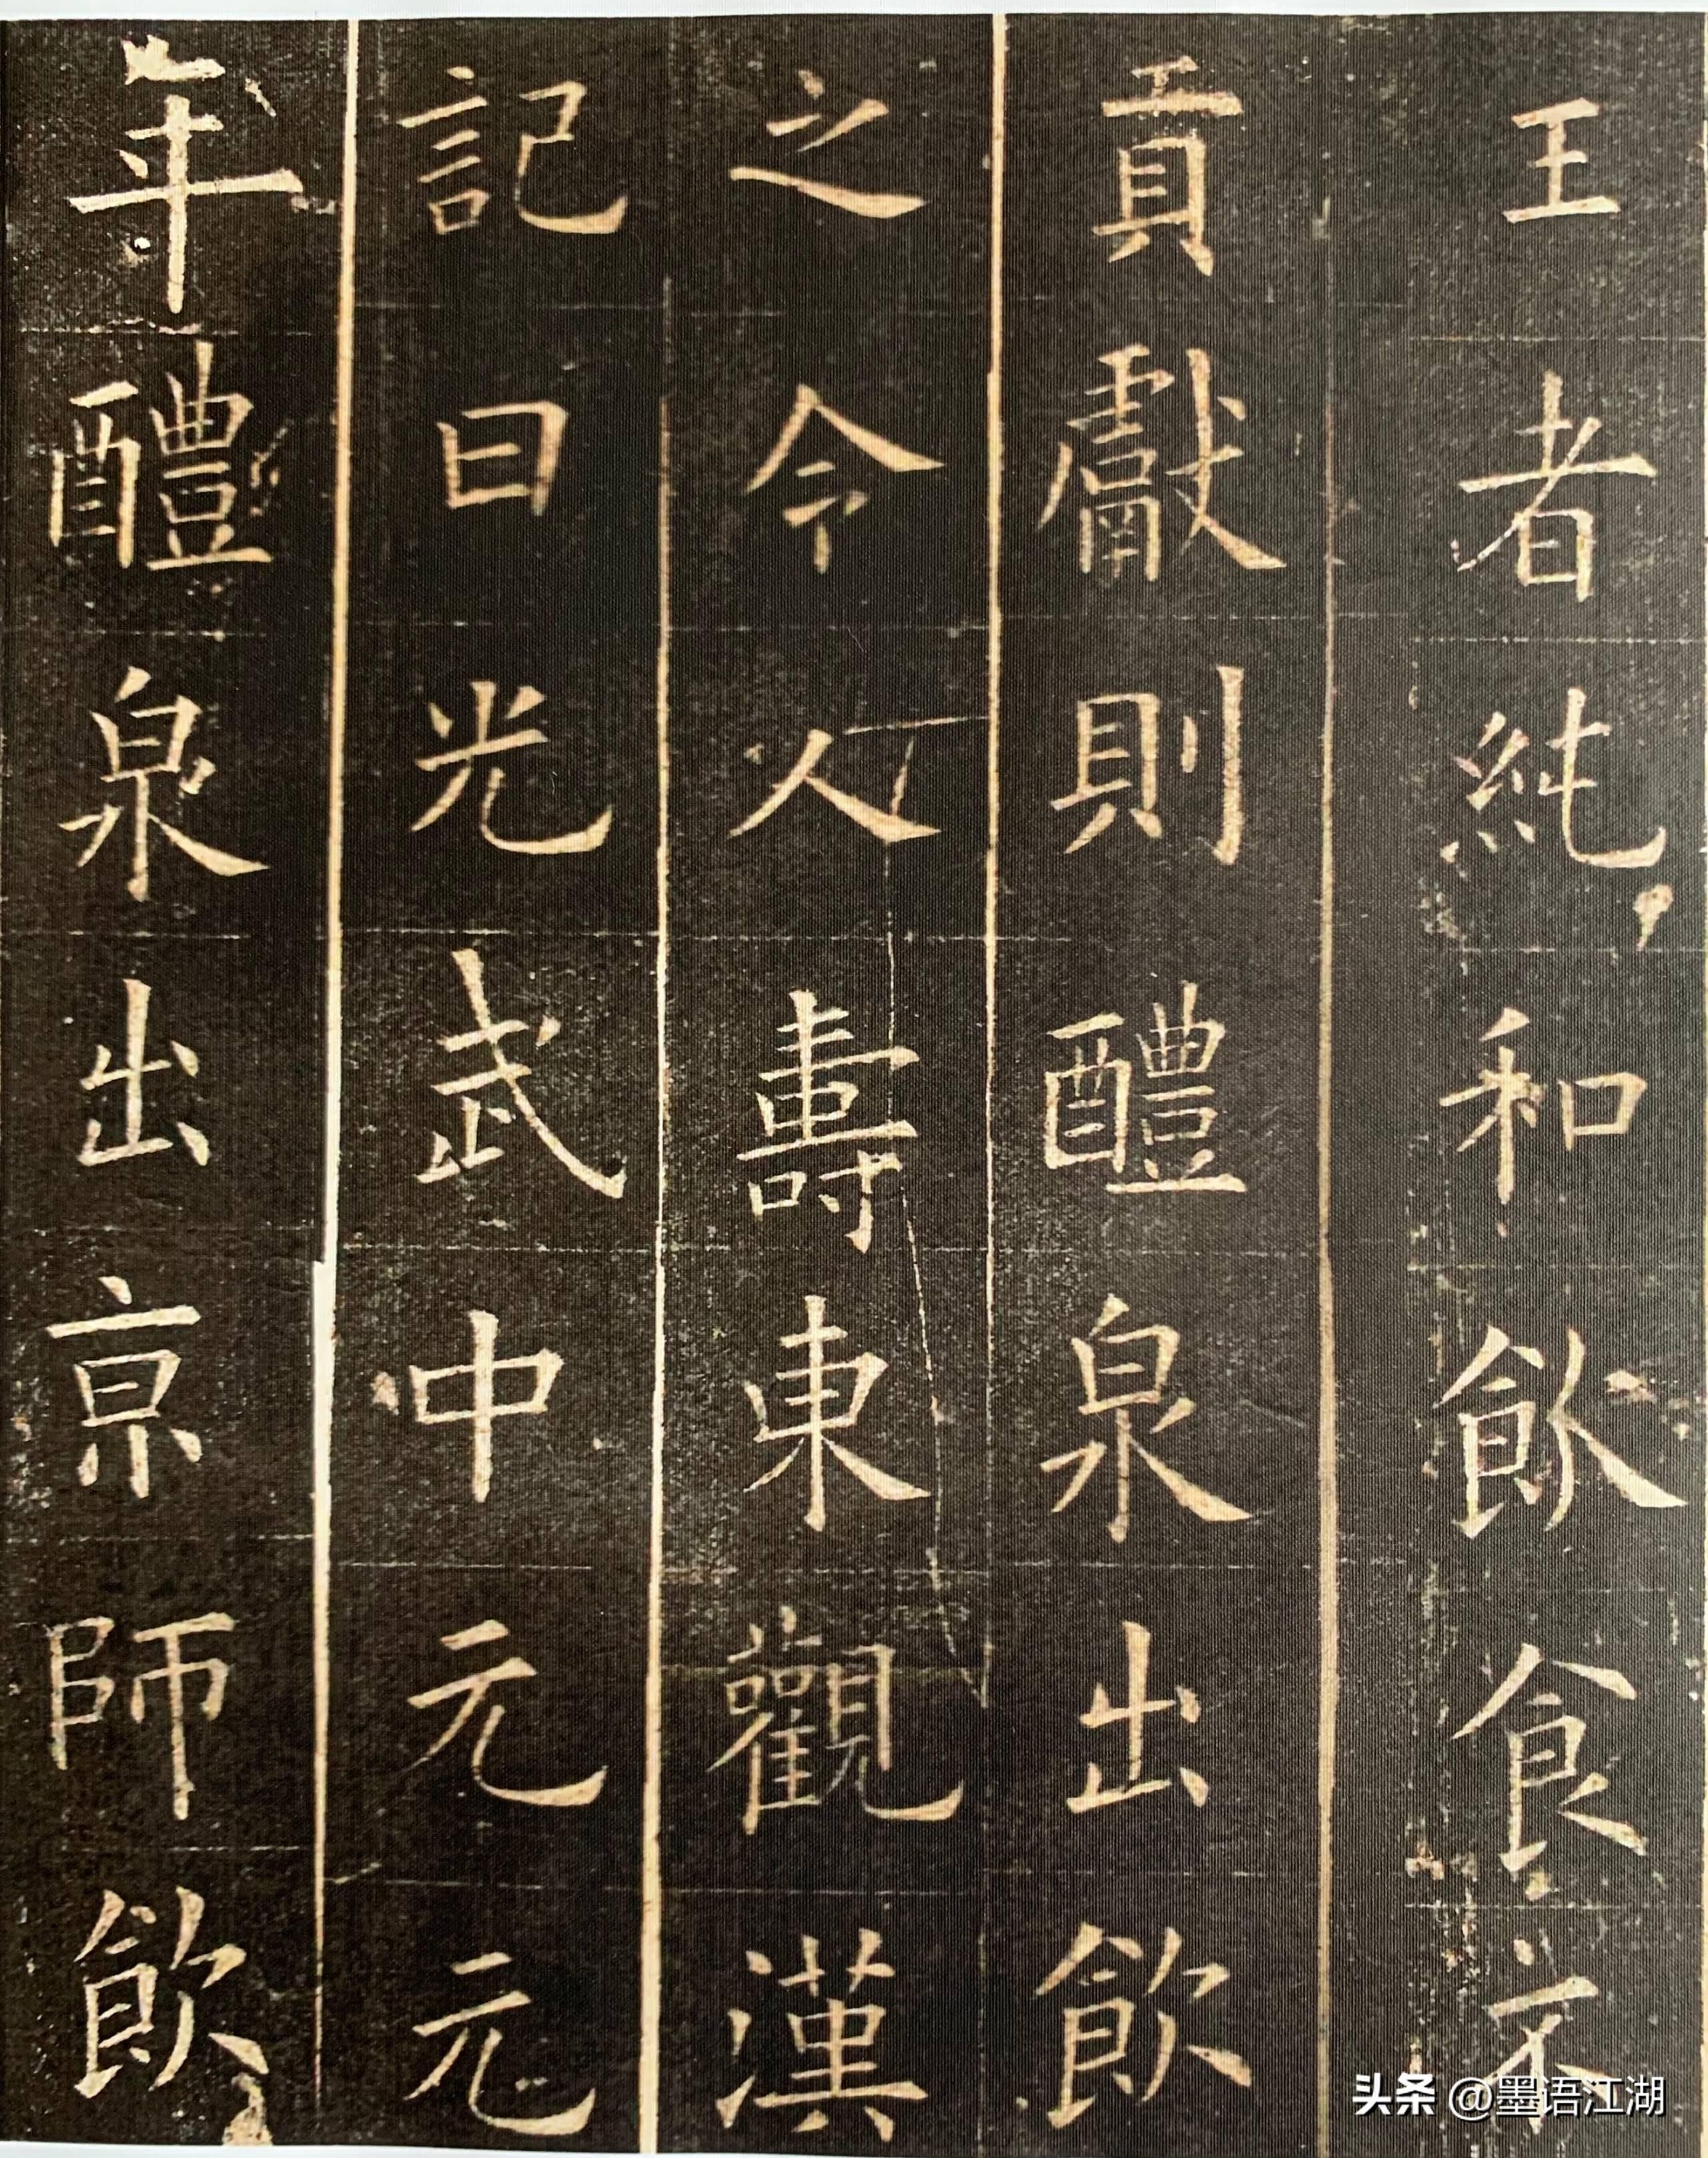 王者純和飲食不
貢獻則醴泉出飲
之令人壽東觀漢
記曰光武中元元
年醴泉出京師飲
头条 @墨语江湖